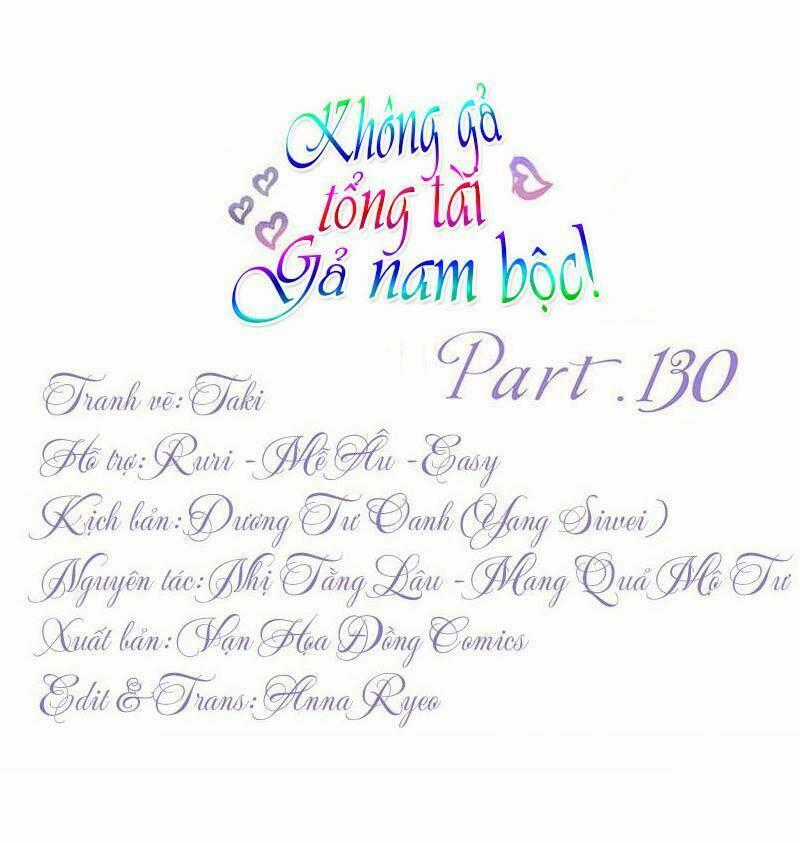 Không gả
tổng tài
Gả nam bộc!
Part.130
Tranh vẽ: Taki
Hỗ trợ: Ruri - Mề Âu - Easy
Kịch bản: Dương Tư Oanh (Yang Siwei)
Nguyên tác: Nhị Tằng Lâu - Mang Quả Mộ Tư
Xuất bản: Vạn Họa Đồng Comics
Edit & Trans: Anna Ryeo